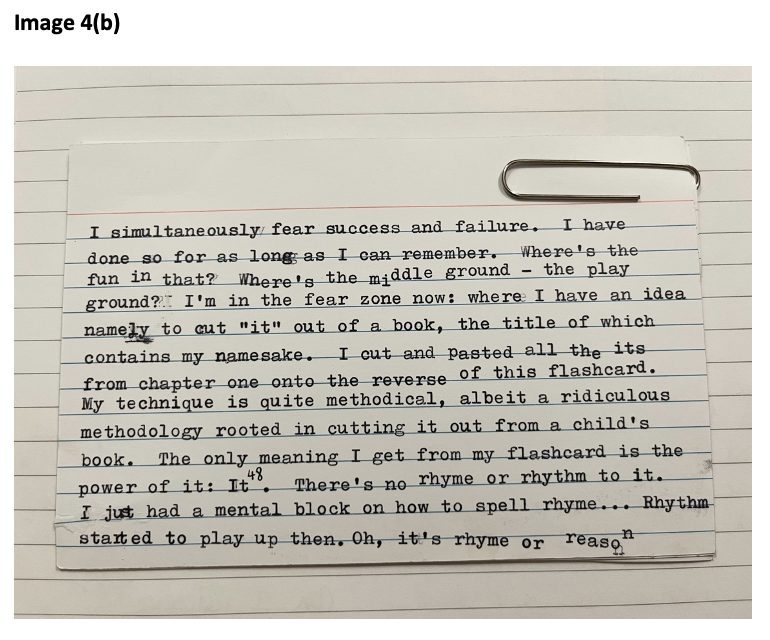 Image 4(b)
I simultaneously fear success and failure. I have
done so for as long as I can remember. Where's the
fun in that? Where's the middle ground – the play
ground? I'm in the fear zone now: where I have an idea
namely to cut "it" out of a book, the title of which
contains my namesake. I cut and pasted all the its
from chapter one onto the reverse of this flashcard.
My technique is quite methodical, albeit a ridiculous
methodology rooted in cutting it out from a child's
book. The only meaning I get from my flashcard is the
power of it: It⁴⁸. There's no rhyme or rhythm to it.
I just had a mental block on how to spell rhyme... Rhythm
started to play up then. Oh, it's rhyme or reason